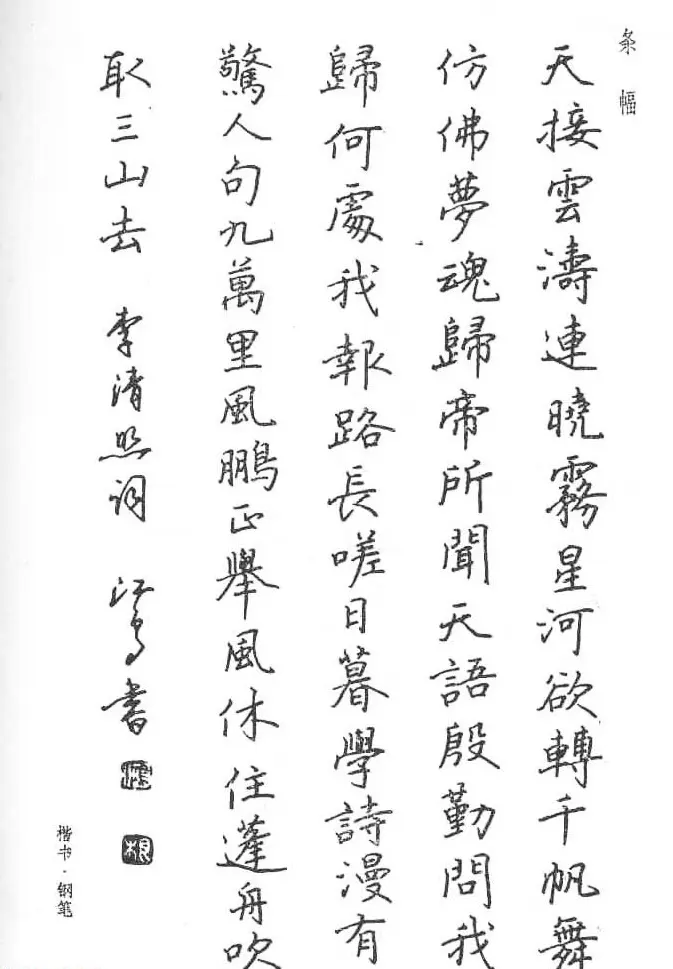 条幅
天接雲濤連曉霧星河欲轉千帆舞
仿佛夢魂歸帝所聞天語殷勤問我
歸何處我報路長嗟日暮學詩漫有
驚人句九萬里風鵬正舉風休住蓬舟吹
取三山去 李清照词 書
楷书·钢笔